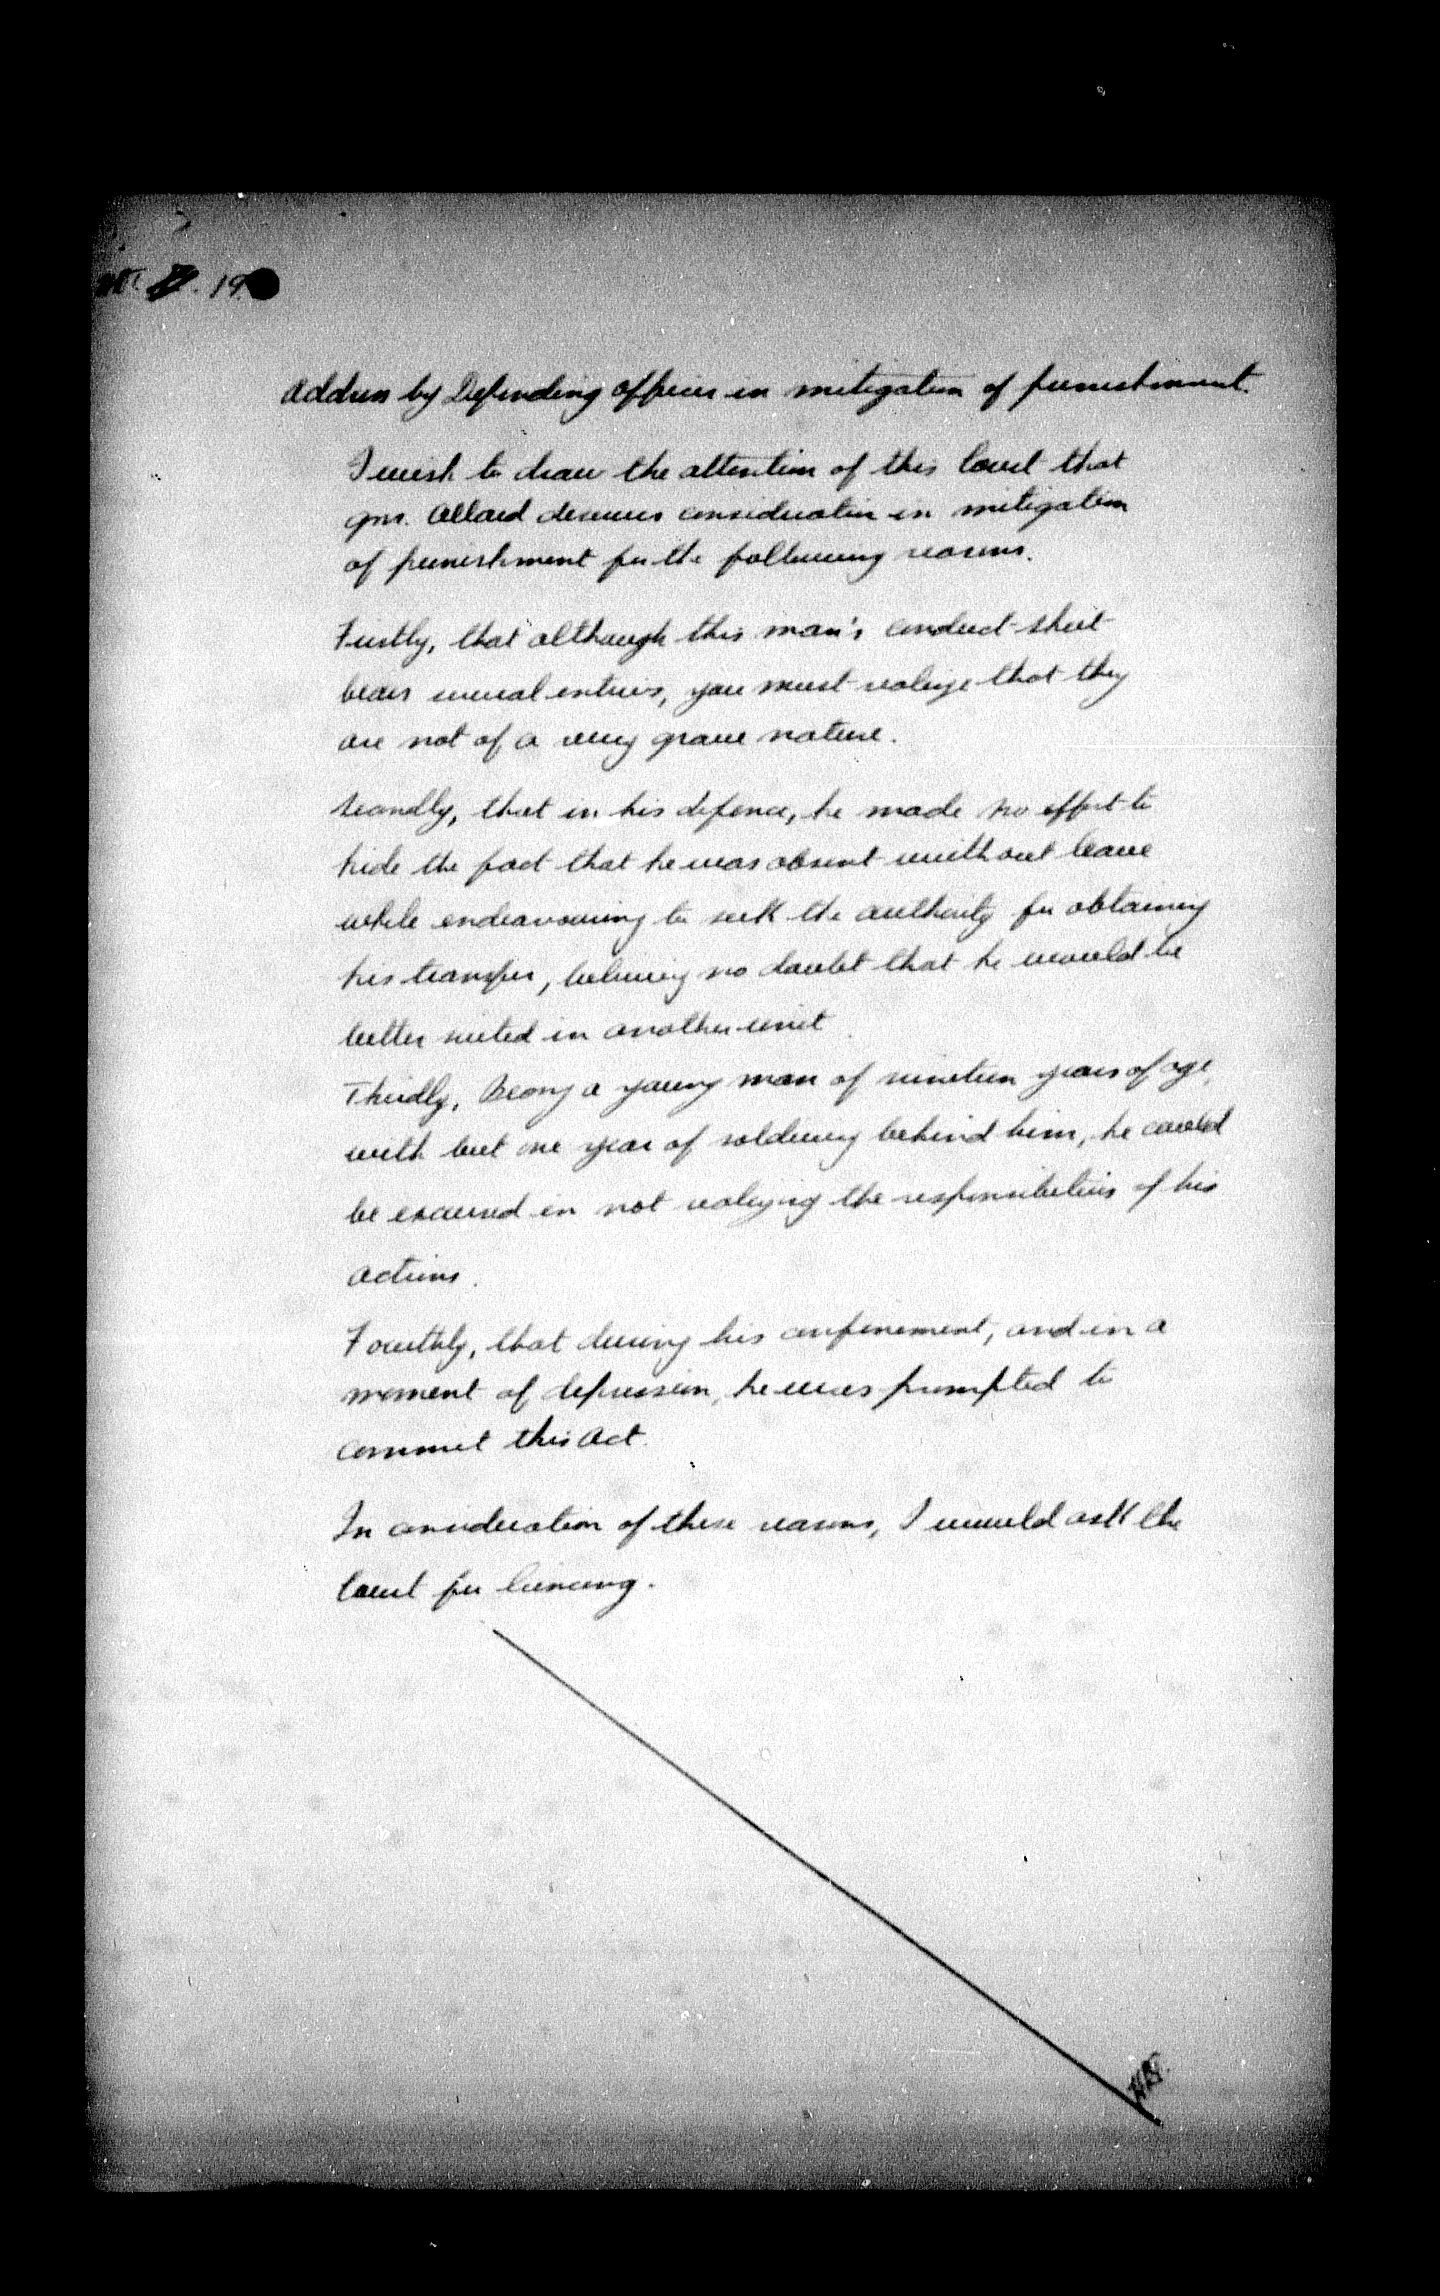 19
Address by Defending officer in mitigation of punishment.
I wish to draw the attention of this Court that
gnr. Allard deserves consideration in mitigation
of punishment for the following reasons.
Firstly, that although this man's conduct sheet
bears several entries, you must realize that they
are not of a very grave nature.
Secondly, that in his defence, he made no effort to
hide the fact that he was absent without leave
while endeavouring to seek the authority for obtaining
his transfer, believing no doubt that he would be
better suited in another unit
Thirdly, Being a young man of nineteen years of age,
with but one year of soldiering behind him, he could
be excused in not realizing the responsibilities of his
actions.
Fourthly, that during his confinement, and in a
moment of depression, he was prompted to
commit this act.
In consideration of these reasons, I would ask the
Court for leniency.